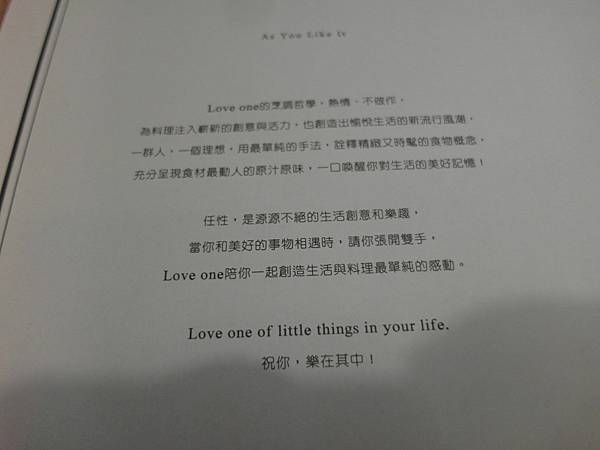 As You Like It
Love one的烹調哲學,熱情、不做作,
為料理注入嶄新的創意與活力,也創造出愉悅生活的新流行風潮,
一群人,一個理想,用最單純的手法,詮釋精緻又時髦的食物概念,
充分呈現食材最動人的原汁原味,一口喚醒你對生活的美好記憶!
任性,是源源不絕的生活創意和樂趣,
當你和美好的事物相遇時,請你張開雙手,
Love one陪你一起創造生活與料理最單純的感動。
Love one of little things in your life.
祝你,樂在其中!